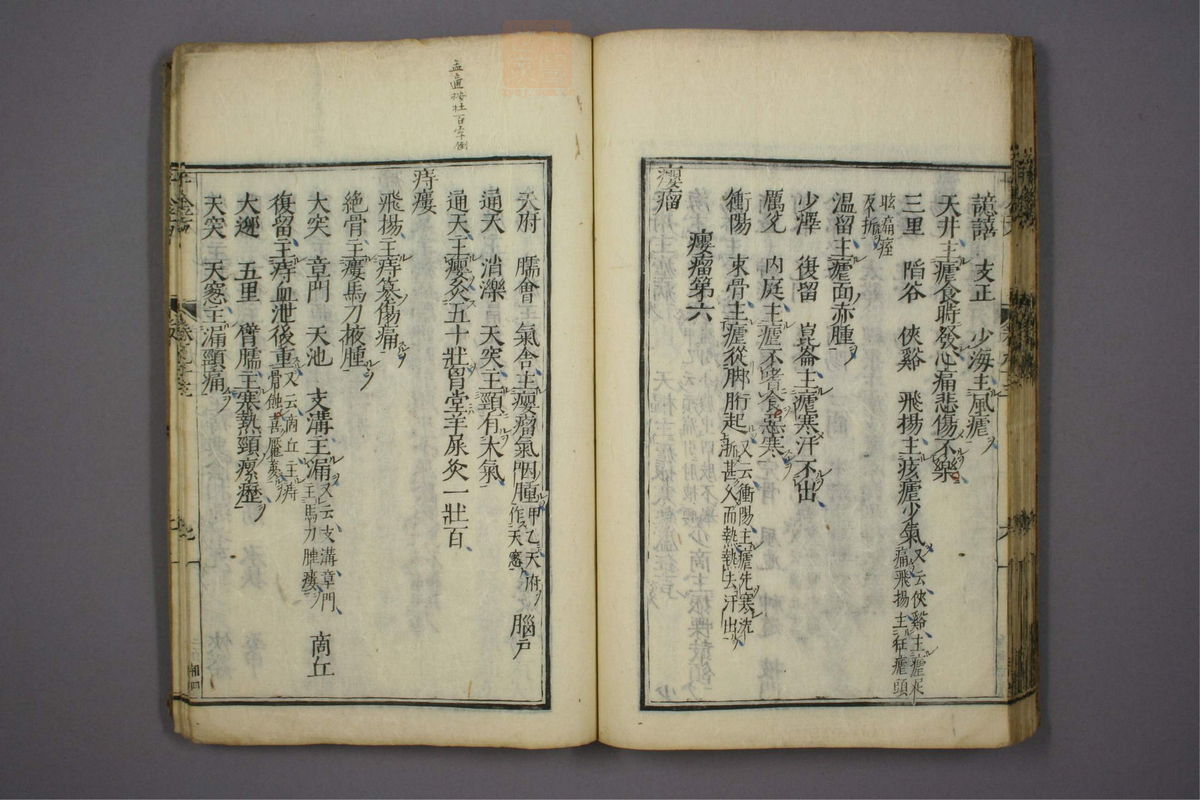 譩譆 支正 少海主風瘧
天井主瘧食時發心痛悲傷不樂
三里 陷谷 俠谿 飛揚主痎瘧少氣又云俠谿主瘧足痛飛揚主狂瘧頭
眩痛痓反折
温留主瘧面赤腫
少澤 復留 崑崙主瘧寒汗不出
厲兌 内庭主瘧不嗜食惡寒
衝陽 束骨主瘧從脚胻起又云衝陽主瘧先寒洗淅甚久而熱熱去汗出
癭瘤第六
癭瘤
天府 臑會 氣舎主癭瘤氣咽腫甲乙天府作天窻 腦戸
通天 消濼 天突主頸有大氣
通天主癭灸五十壯胷堂羊屎灸一壯百
痔瘻
飛揚主痔篡傷痛
絶骨主瘻馬刀掖腫
大突 章門 天池 支溝主漏又云支溝章門主馬刀腫瘻 商丘
復留主痔血泄後重又云商丘主痔骨蝕喜魘夢
大迎 五里 臂臑主寒熱頸瘰癧
天突 天窻主漏頸痛